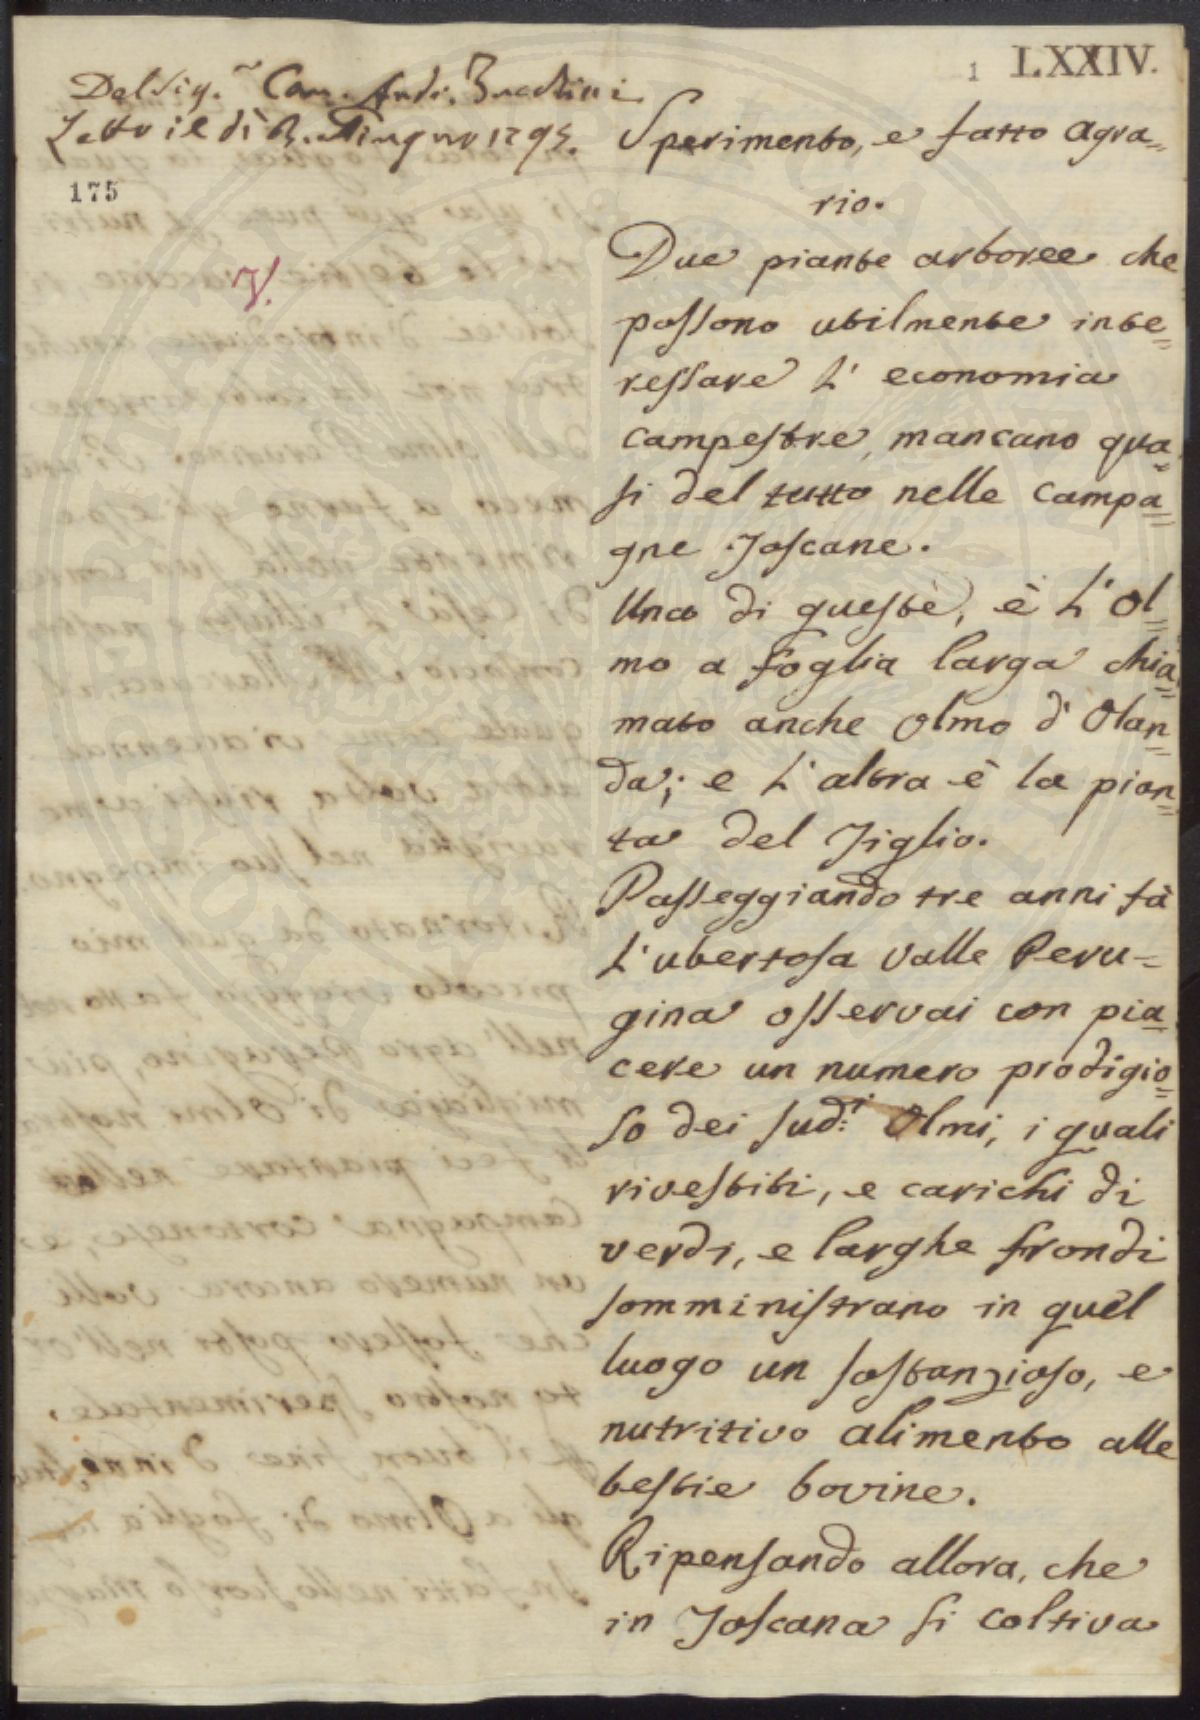 1 LXXIV.
Del Sig.r Can. Andr. Zucchini
Letto il dì 3. Giugno 1795.
175
V.
Sperimento, e fatto Agra=
rio.
Due piante arboree che
possono utilmente inte=
ressare L' economia
campestre, mancano qua=
si del tutto nelle Campa=
gne Toscane.
Una di queste, è L' Ol=
mo a foglia larga chia=
mato anche Olmo d' Olan=
da; e L' altra è la pian=
ta del Tiglio.
Passeggiando tre anni fà
L' ubertosa Valle Peru=
gina osservai con pia=
cere un numero prodigio=
so dei sud.i Olmi, i quali
rivestiti, e carichi di
verdi, e larghe frondi
somministrano in quel
luogo un sostanzioso, e
nutritivo alimento alle
bestie bovine.
Ripensando allora, che
in Toscana si coltiva